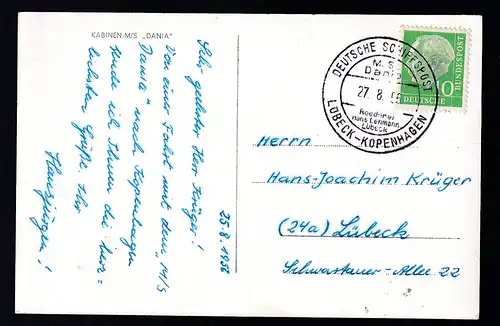 KABINEN-M/S „DANIA"
25.8.1956
Sehr geehrter Herr Krüger!
Von einer Fahrt mit dem „M/S
Dania" nach Kopenhagen
sende ich Ihnen die herz-
lichsten Grüße. Ihr
Hansjürgen!
DEUTSCHE SCHIFFSPOST
M.S.
Dania
27.8.56
Reederei
Hans Lehmann
Lübeck
LÜBECK-KOPENHAGEN
DEUTSCHE
BUNDESPOST
10
Herrn
Hans-Joachim Krüger
(24a) Lübeck
Schwartauer-Allee 22